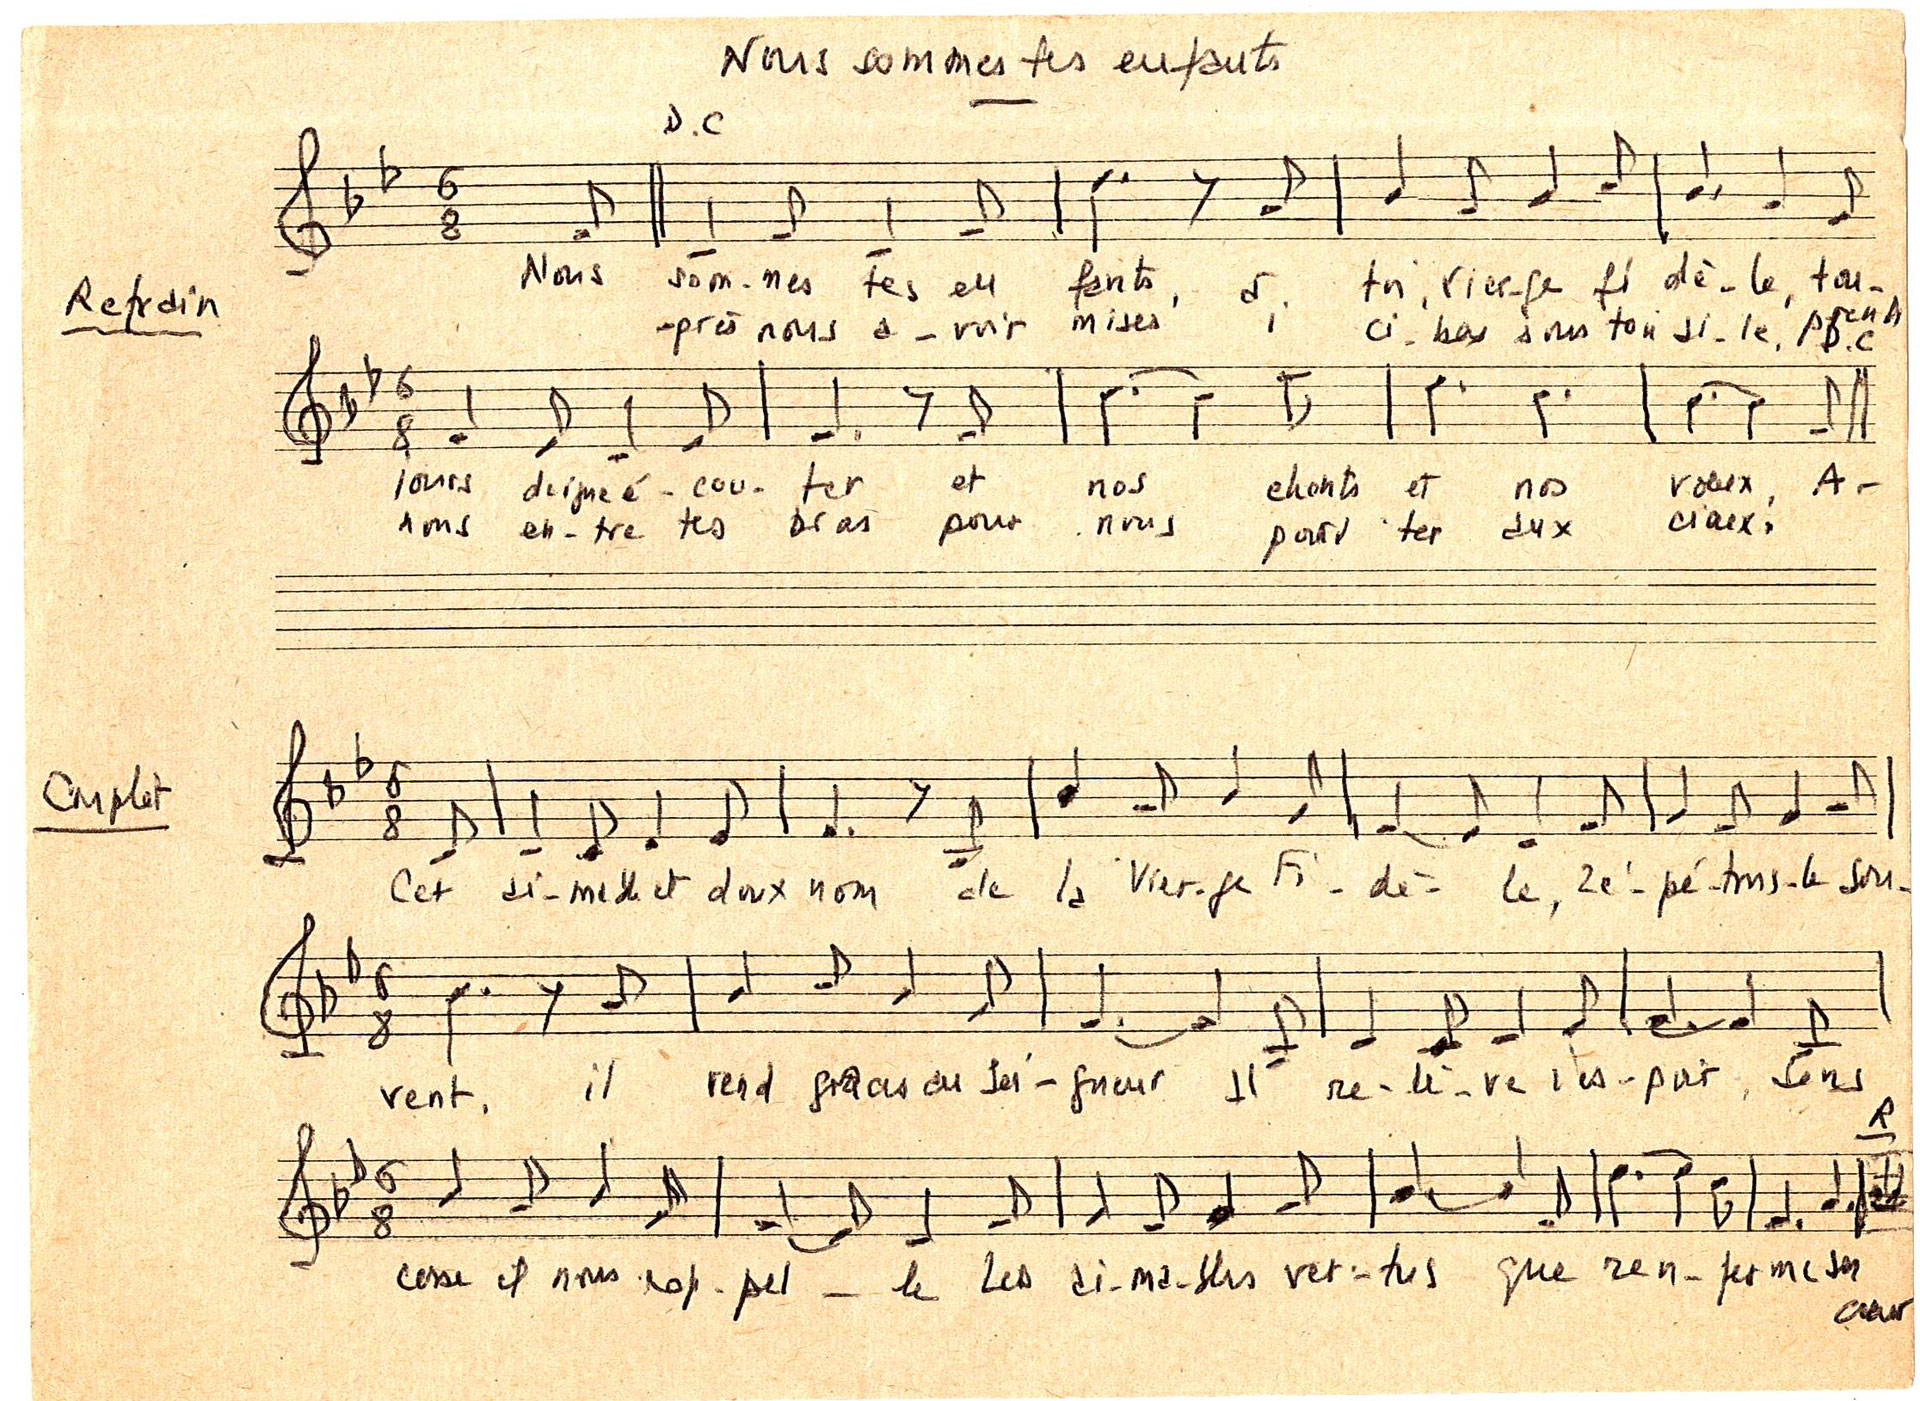 Nous sommes tes enfants
D.C
6 8
Nous som-mes tes en fants, ô, toi, Vier-ge fi dè-le, tou-
Refrain
-près nous a-voir mises i ci-bas sous ton ai-le, prends
D.C
6 8
jours daigne é-cou-ter et nos chants et nos vœux, A-
nous en-tre tes bras pour nous por ter aux cieux.
Couplet
6 8
Cet ai-mable et doux nom de la Vier-ge Fi-dè-le, ré-pé-tons-le sou-
6 8
vent, il rend grâces au Sei-gneur Il re-lè-ve l'es-poir, Sans
R
6 8
cesse il nous rap-pel-le Les ai-ma-bles ver-tus que ren-ferme son
cœur